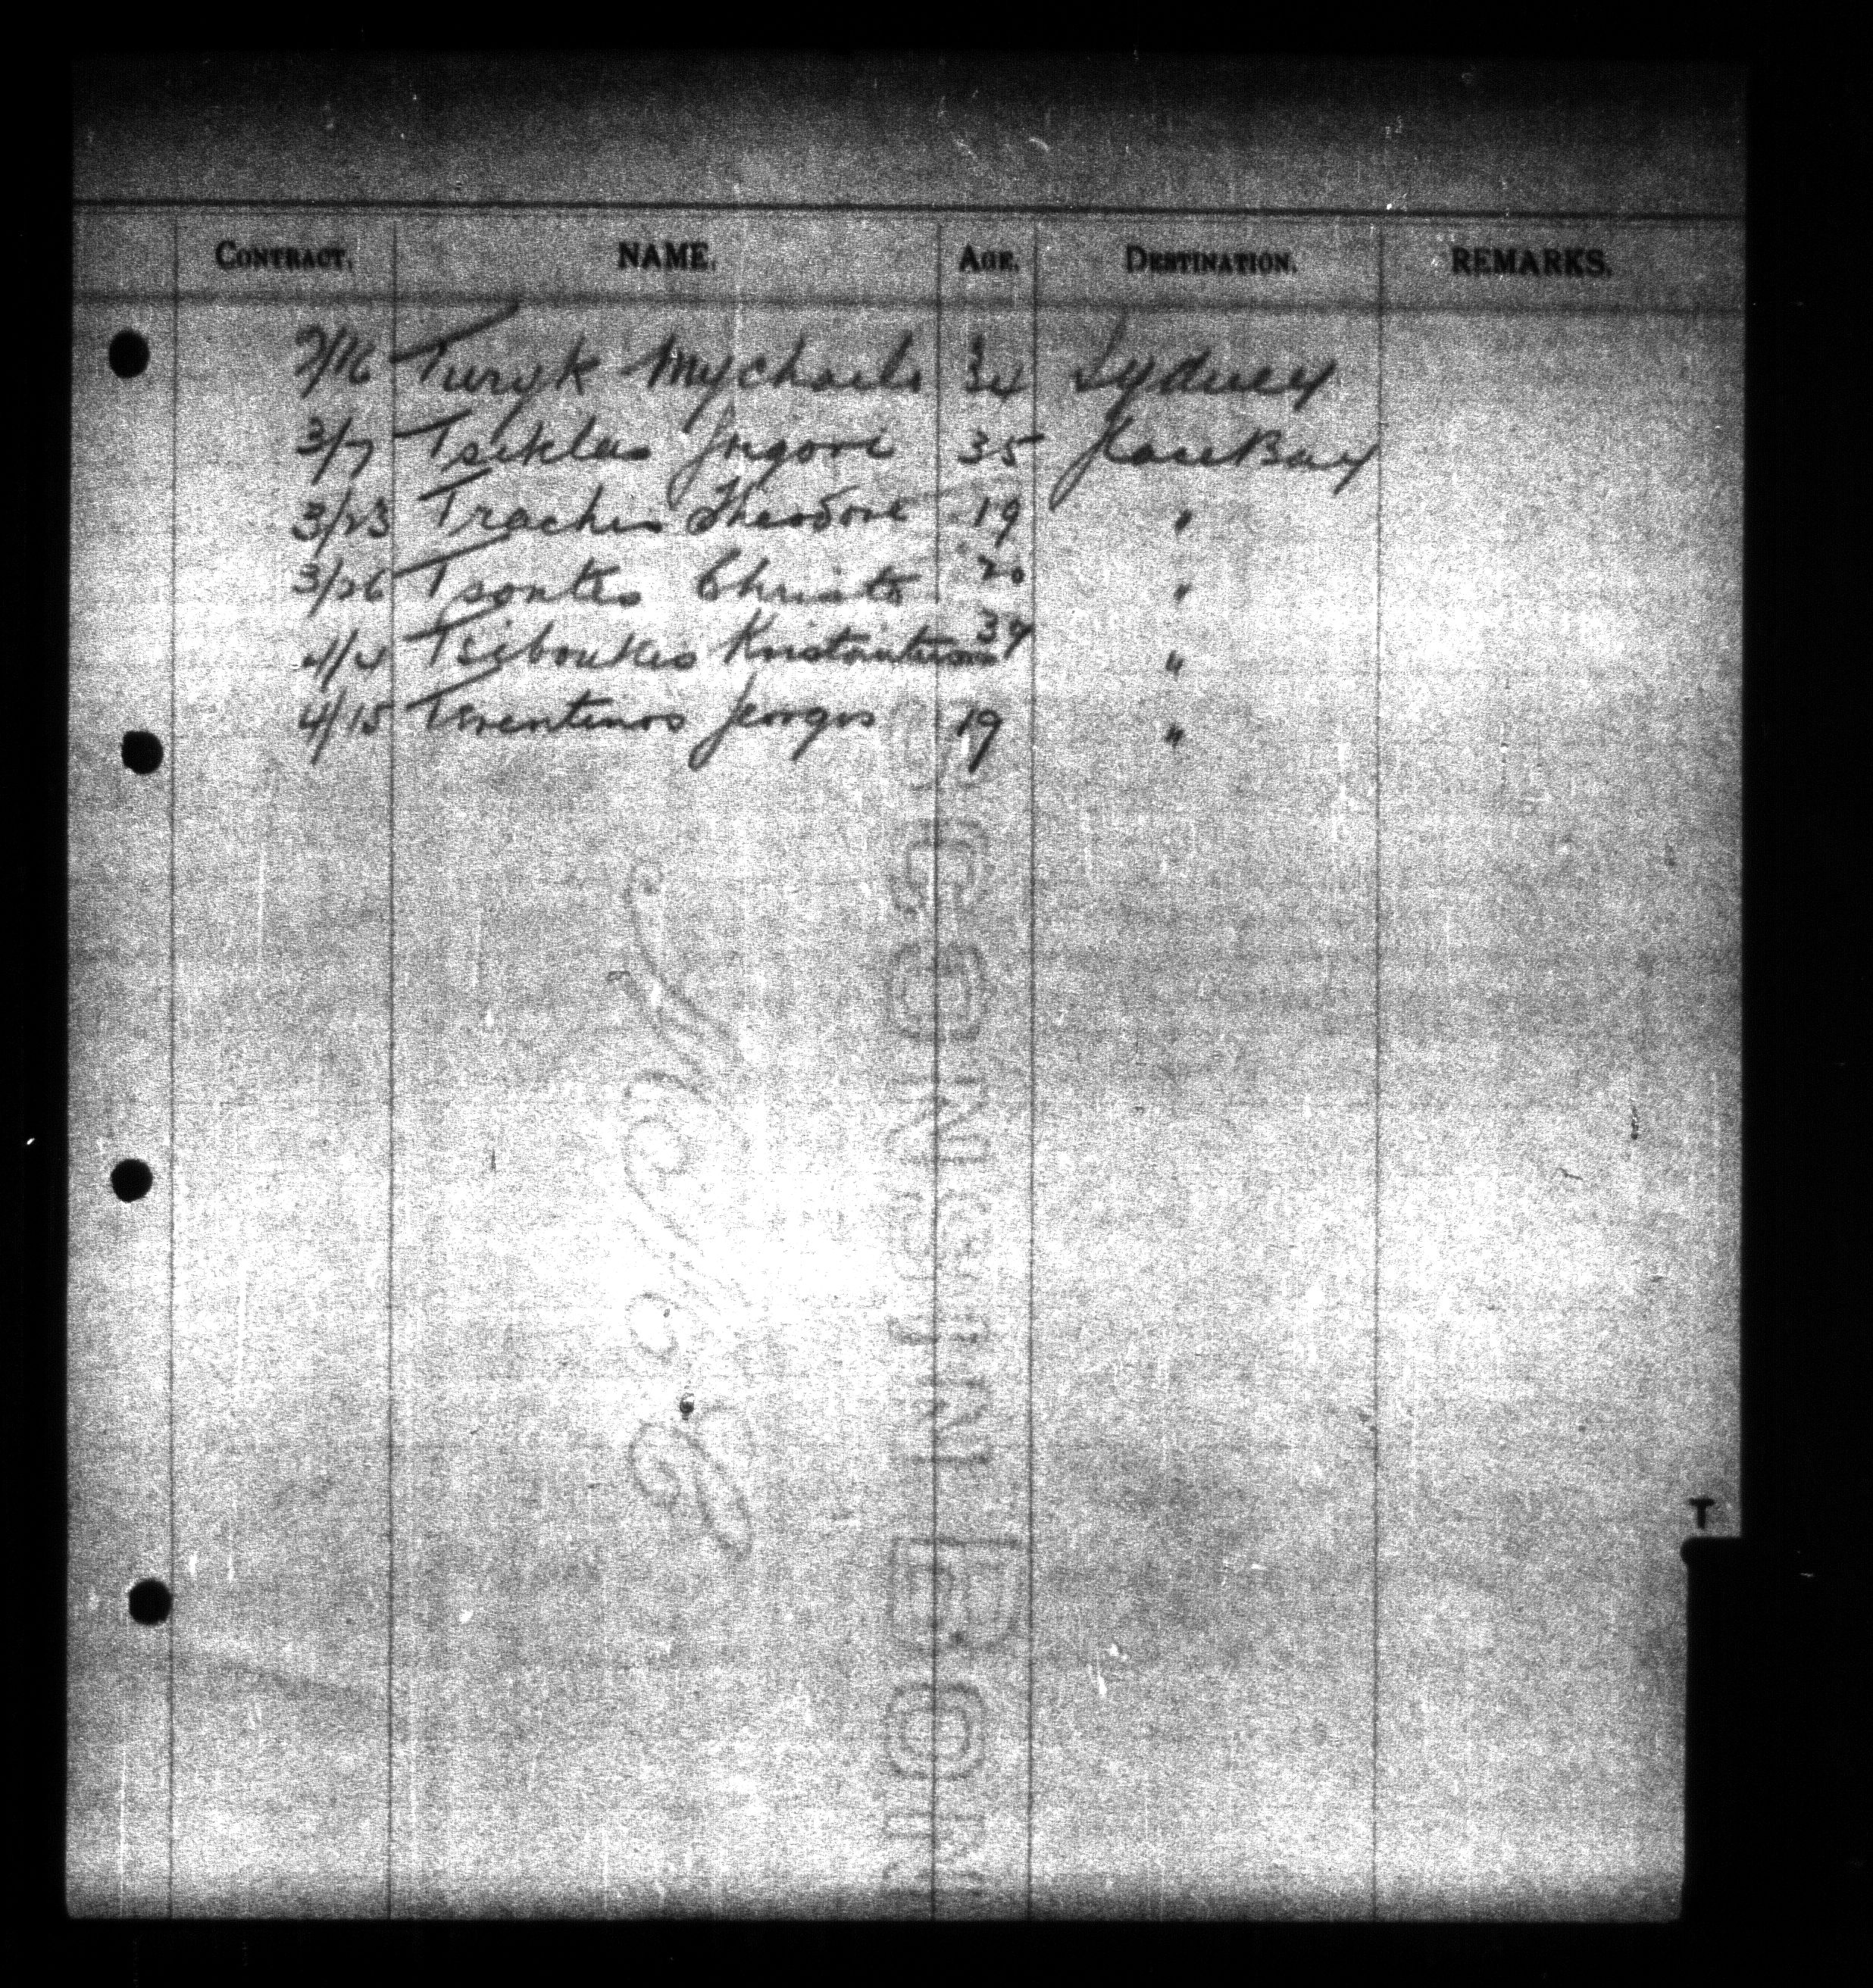 CONTRACT. NAME. AGE. DESTINATION. REMARKS.
2/16 Turyk Mychailo 34 Sydney
3/7 Tsiklas Grigori 35 Glace Bay
3/23 Trachis Theodore 19 "
3/26 Tsontes Christo 20 "
4/4 Tsiboukis Konstantinos 37 "
4/15 Terentinos Georges 19 "
T